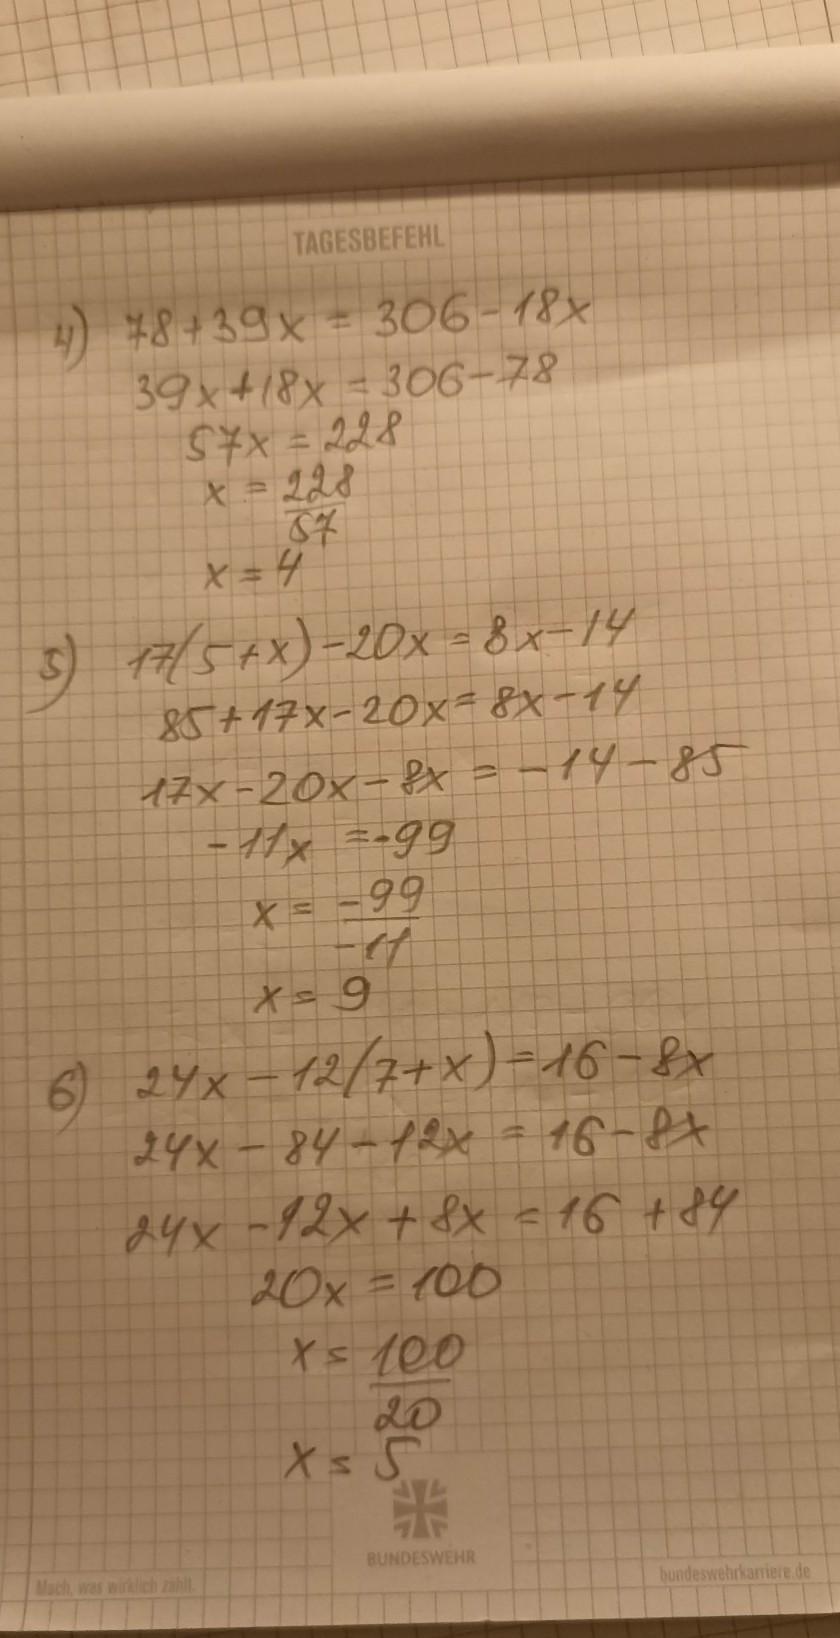 TAGESBEFEHL
4) 78+39x = 306-18x
39x+18x = 306-78
57x = 228
x = 228
57
x = 4
5) 17(5+x)-20x = 8x-14
85+17x-20x = 8x-14
17x-20x-8x = -14-85
-11x = -99
x = -99
-11
x = 9
6) 24x-12(7+x) = 16-8x
24x-84-12x = 16-8x
24x-12x+8x = 16+84
20x = 100
x = 100
20
x = 5
BUNDESWEHR
Mach, was wirklich zählt.
bundeswehrkarriere.de